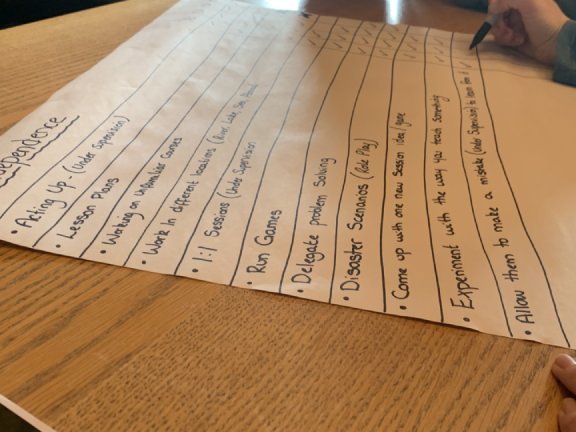 ependence
• Acting Up (Under Supervision)
• Lesson Plans
• Working on Unfamiliar Games
• Work In different locations (River, Lake, Sea,
• 1:1 Sessions (Under Supervision
• Run Games
• Delegate problem Solving
• Disaster Scenarios (Role Play)
• Come up with one new session idea/game
• Experiment with the way you teach something
• Allow them to make a mistake (Under Supervision) to learn from it